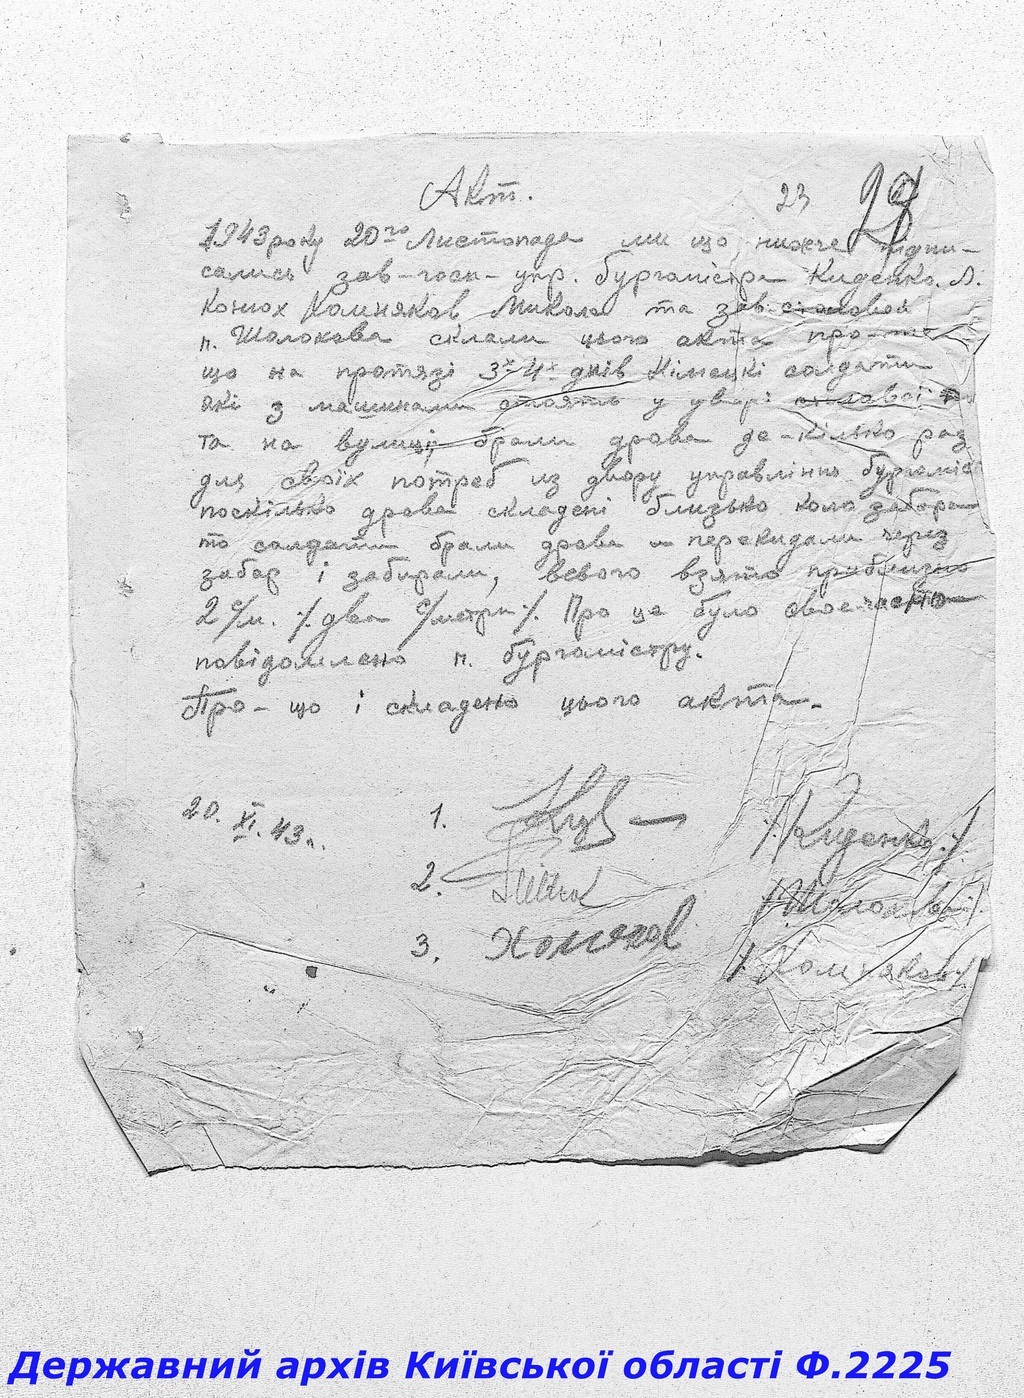 Акт.
23
28
1943 року 20го Листопада ми що нижче підпи-
сались зав-госп-упр. бургомістра Киденко. Л.
конюх Хомняков Микола та зав. столовой
п. Шолохова склали цього акта про-те
що на протязі 3х-4х днів Німецкі солдати
які з машинами стоять у дворі столовоі
та на вулиці, брали дрова де-кілько раз
для своїх потреб из двору управлінню бургоміс
поскілько дрова складені близько коло забора
то солдати брали дрова и перекидали через
забор і забирали, всього взято приблизно
2 с/м. /. два с/метри ./. Про це було своечасно
повідомлено п. бургомістру.
Про-що і складено цього акта.
20. XI. 43 г.
1. /. Киденко ./
2. /. Шолохова ./
3. Хомяков /. Хомняков ./
Державний архів Київської області Ф.2225